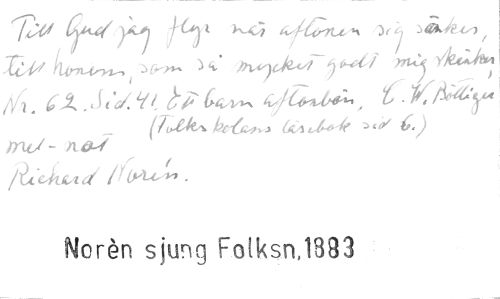 Till Gud jag flyr när aftonen sig sänker,
till honom, som så mycket godt mig skänker,
Nr. 62. Sid. 41. Ett barns aftonbön, C. W. Böttiger
(Folkskolans läsebok sid 6.)
mel-not
Richard Norén.
Norèn sjung Folksn,1883